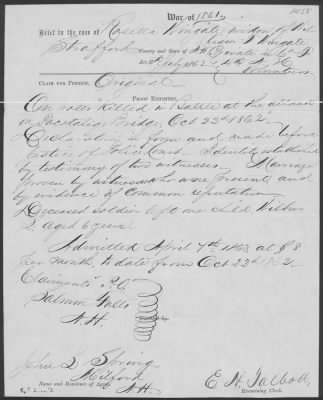 War of 1861.
Brief in the case of Rosetta Wingate, widow of
Wingate
Strafford County and State of N.H. Private in Co. D
Act of July 1862. 4th N. H.
Volunteers
CLAIM FOR PENSION, Original.
PROOF EXHIBITED,
On rolls killed in battle at the
Pocotaligo Bridge, Oct 22d 1862.
Declaration in form and made before
Justice of Police Court. Identity established
by testimony of two witnesses. Marriage
proven by witnesses who were present and
by evidence of common reputation.
Deceased soldier left one child, Wilbur
aged 6 years.
Admitted April 7th 1863 at $8
per month, to date from Oct 22d 1862.
Claimants P.O.
Salmon Falls
N.H.
John L Spring
Milford
N.H.
Name and Residence of Agent
E. H. Talbott,
Examining Clerk.